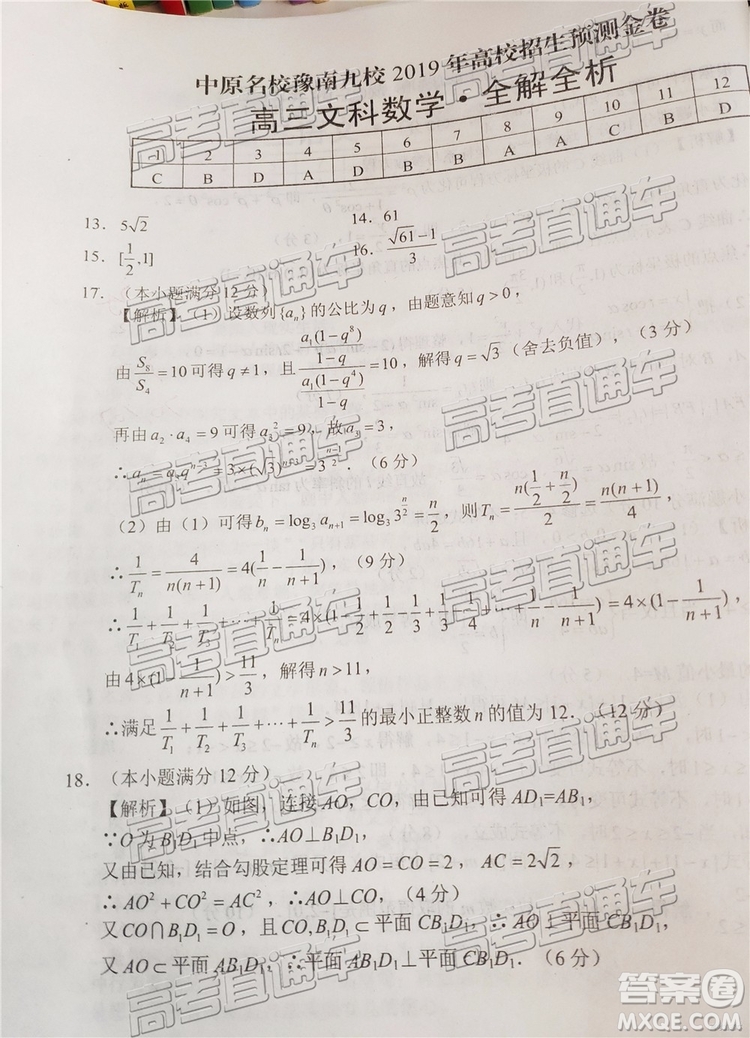 中原名校豫南九校 2019 年高校招生预测金卷
高三文科数学·全解全析
1 2 3 4 5 6 7 8 9 10 11 12
C B D A D B D A A C B D
13. 5√2 14. 61
15. [1/2,1] 16. (√61-1)/3
17. (本小题满分 12 分)
【解析】(1) 设数列{aₙ}的公比为 q，由题意知 q>0，
由 S₈/S₄=10 可得 q≠1，且 [a₁(1-q⁸)/(1-q)]/[a₁(1-q⁴)/(1-q)]=10，解得 q=√3 (舍去负值)，(3 分)
再由 a₂·a₄=9 可得 a₃²=9，故 a₃=3，
∴aₙ=a₃qⁿ⁻³=3×(√3)ⁿ⁻³=3^((n-1)/2). (6 分)
(2) 由 (1) 可得 bₙ=log₃aₙ₊₁=log₃3^(n/2)=n/2，则 Tₙ=n(1/2+n/2)/2=n(n+1)/4，
∴1/Tₙ=4/(n(n+1))=4(1/n-1/(n+1))，(9 分)
∴1/T₁+1/T₂+1/T₃+…+1/Tₙ=4×(1-1/2+1/2-1/3+1/3-1/4+…+1/n-1/(n+1))=4×(1-1/(n+1))，
由 4×(1-1/(n+1))>11/3，解得 n>11，
∴满足 1/T₁+1/T₂+1/T₃+…+1/Tₙ>11/3 的最小正整数 n 的值为 12. (12 分)
18. (本小题满分 12 分)
【解析】(1) 如图，连接 AO，CO，由已知可得 AD₁=AB₁，
∵O 为 B₁D₁ 中点，∴AO⊥B₁D₁，
又由已知，结合勾股定理可得 AO=CO=2，AC=2√2，
∴AO²+CO²=AC²，∴AO⊥CO，(4 分)
又 CO∩B₁D₁=O，且 CO,B₁D₁⊂平面 CB₁D₁，∴AO⊥平面 CB₁D₁，
又 AO⊂平面 AB₁D₁，∴平面 AB₁D₁⊥平面 CB₁D₁. (6 分)
高考直通车
答案卷
MXQE.COM